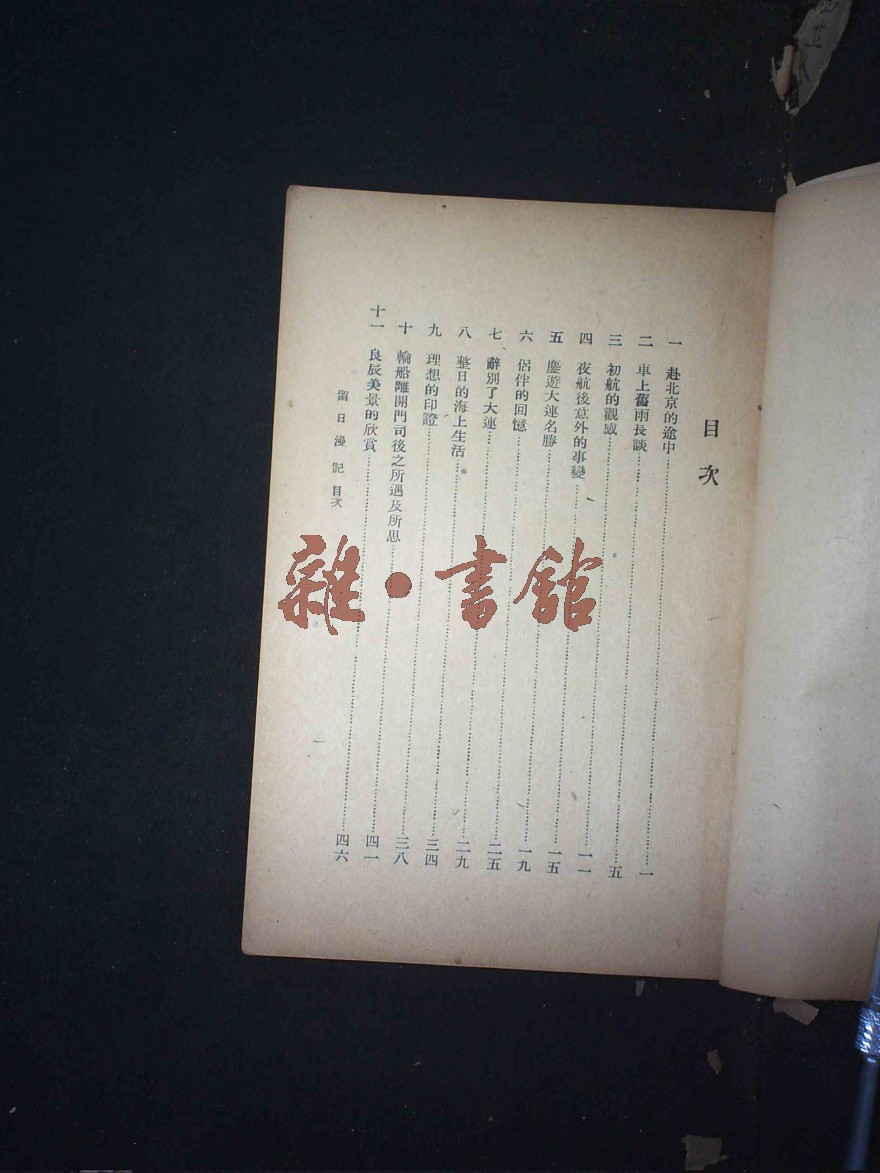 目次
一　赴北京的途中……一
二　車上舊雨長談……五
三　初航的觀感……一一
四　夜航後意外的事變……一五
五　塵遊大連名勝……一九
六　侶伴的回憶……二五
七　辭別了大連……二九
八　整日的海上生活……三四
九　理想的印證……三八
十　輪船離開門司後之所遇及所思……四一
十一　良辰美景的欣賞……四六
留日漫記　目次
一
雜・書館